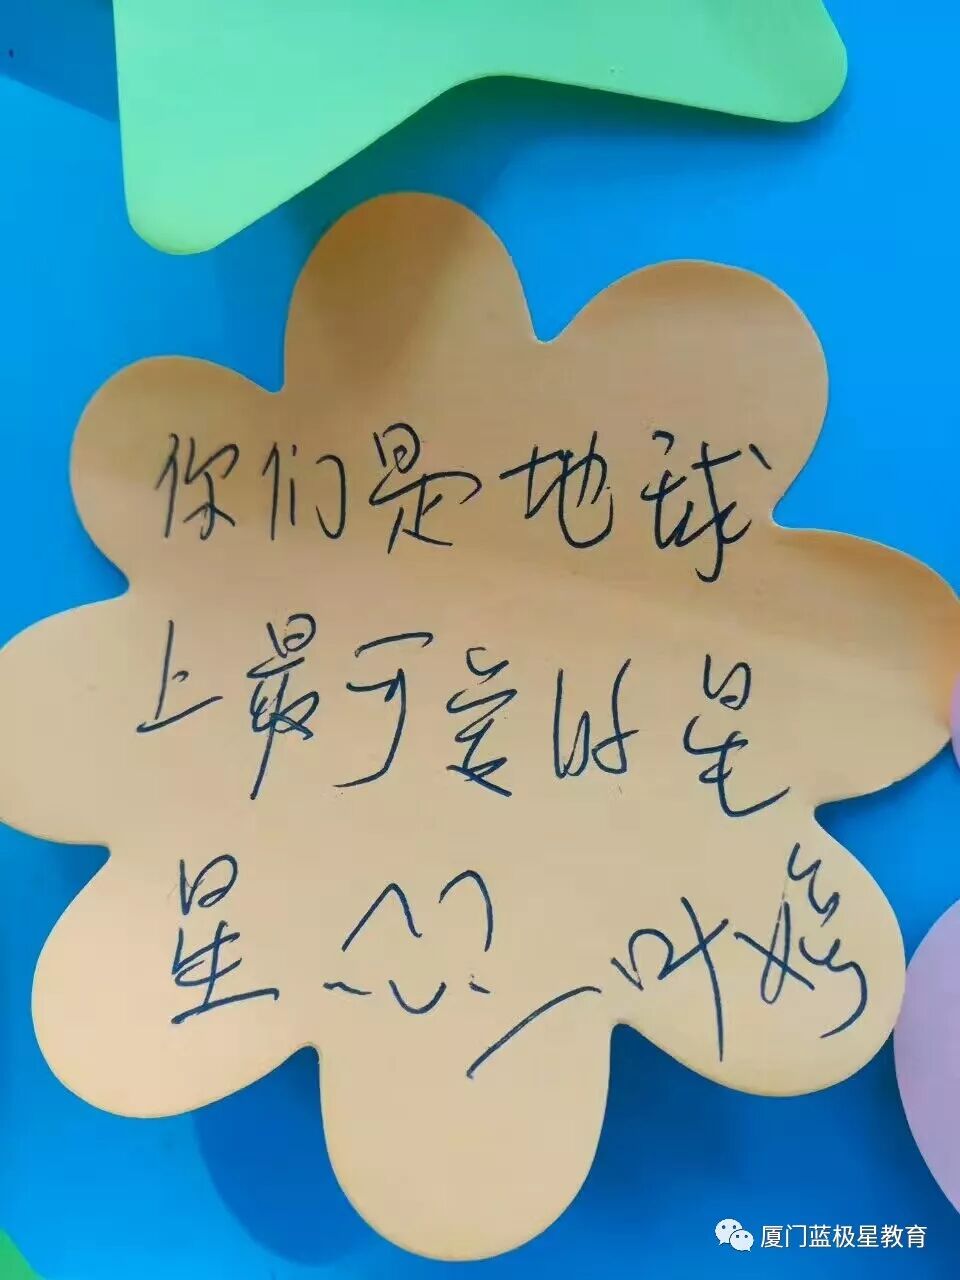 你们是地球
上最可爱的星
星 叶婷
厦门蓝极星教育